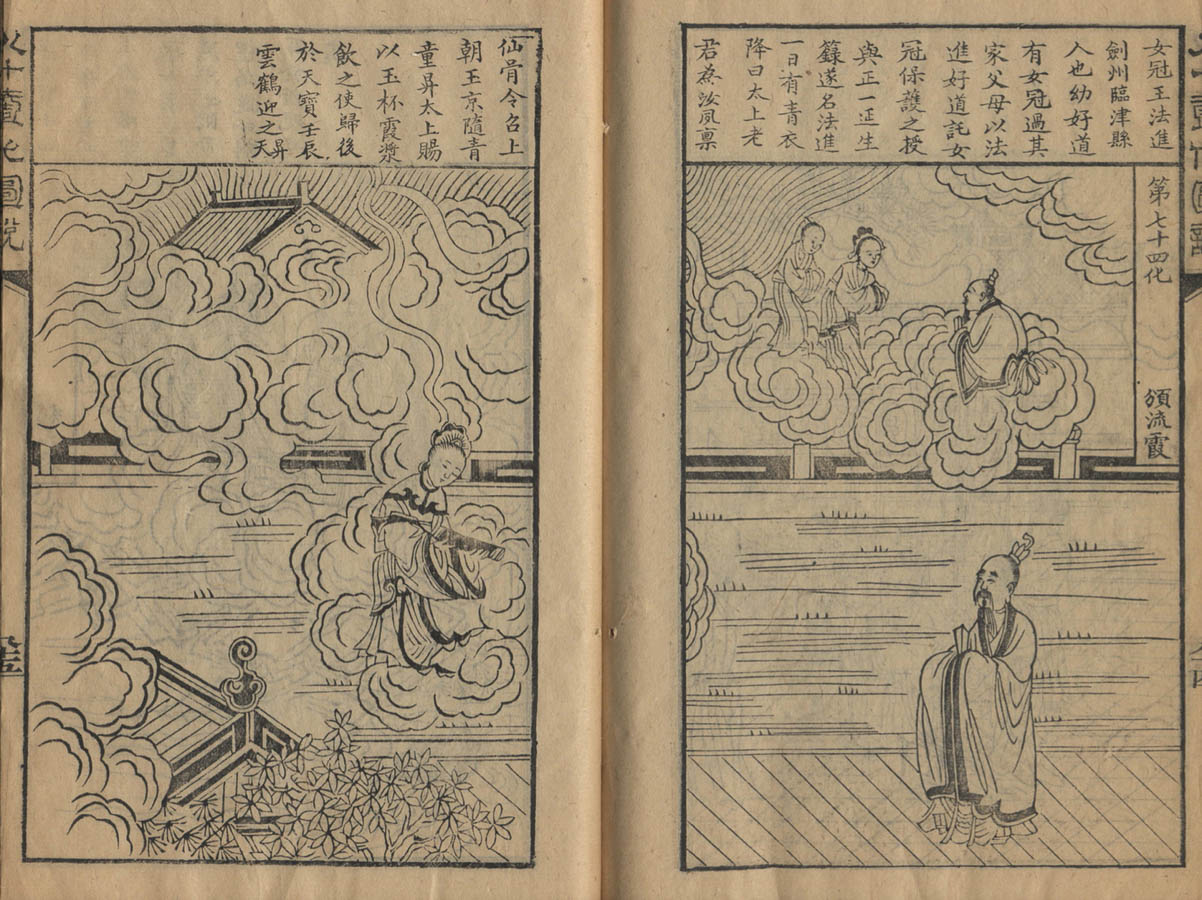 女冠王法進
劍州臨津縣
人也幼好道
有女冠過其
家父母以法
進好道託女
冠保護之授
與正一延生
籙遂名法進
一日有青衣
降曰太上老
君為汝夙稟
第七十四化
頒流霞
仙骨令召上
朝玉京隨青
童昇太上賜
以玉杯霞漿
飲之使歸後
於天寶壬辰
雲鶴迎之昇
天
化圖說